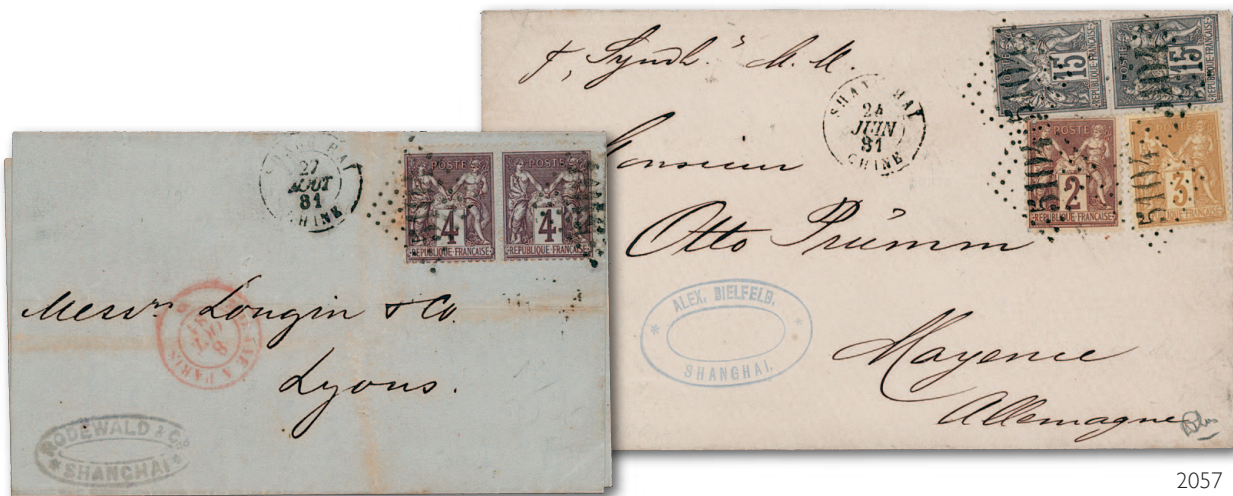 SHANG HAI
27
AOUT
81
CHINE
POSTE
4
REPUBLIQUE FRANÇAISE
POSTE
4
REPUBLIQUE FRANÇAISE
Messrs Longin & Co.
Lyons.
A PARIS
8
OCT
81
RODEWALD & Co
SHANGHAI
M. M.
SHANG HAI
24
JUIN
81
CHINE
POSTE
15
REPUBLIQUE FRANÇAISE
POSTE
15
REPUBLIQUE FRANÇAISE
POSTE
2
REPUBLIQUE FRANÇAISE
5104
3
REPUBLIQUE FRANÇAISE
5104
Monsieur
Otto Prümm
ALEX. BIELFELD.
SHANGHAI.
Mayence
Allemagne
2057